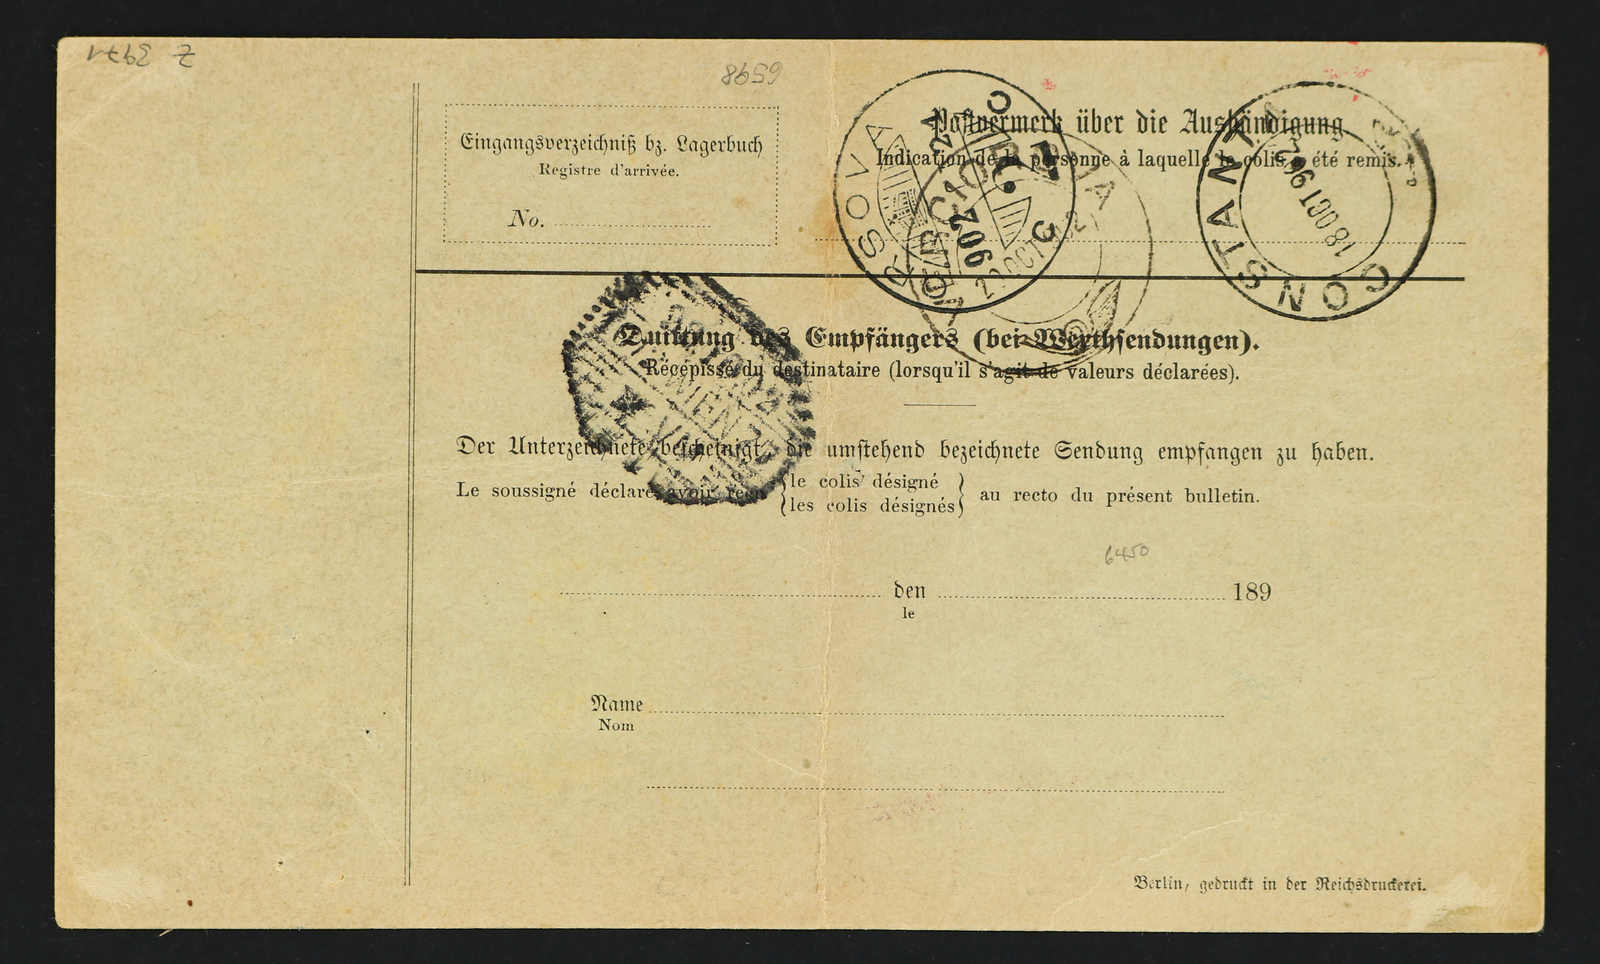 Z 3971
8659
Eingangsverzeichniß bz. Lagerbuch
Registre d'arrivée.
No.
Postvermerk über die Aushändigung
Indication de la personne à laquelle le colis a été remis.
ORSOVA
902
CONSTANTA
18 OCT 902
Quittung des Empfängers (bei Werthsendungen).
Récépissé du destinataire (lorsqu'il s'agit de valeurs déclarées).
Der Unterzeichnete bescheinigt, die umstehend bezeichnete Sendung empfangen zu haben.
Le soussigné déclare avoir reçu {le colis désigné / les colis désignés} au recto du présent bulletin.
6450
den 189
le
Name
Nom
Berlin, gedruckt in der Reichsdruckerei.